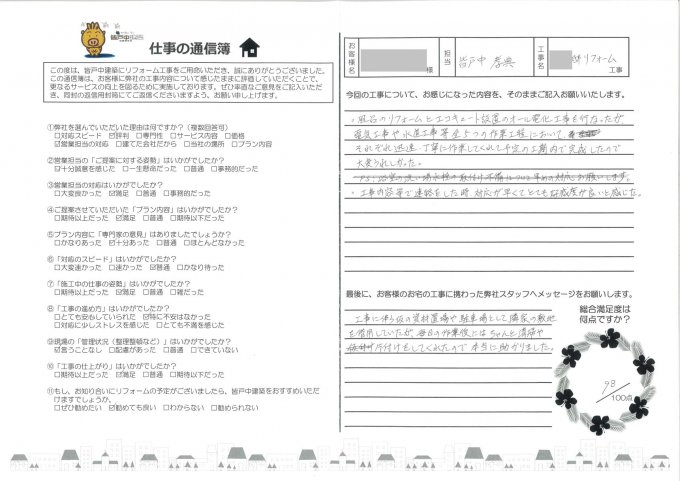 皆戸中建築
仕事の通信簿
この度は、皆戸中建築にリフォーム工事をご用命いただき、誠にありがとうございました。
この通信簿は、お客様に弊社の工事内容について感じたままに評価していただくことで、
更なるサービスの向上を図るために実施しております。ぜひ率直なご意見をご記入いただ
き、同封の返信用封筒にてご返信くださいますよう、お願い申し上げます。
①弊社を選んでいただいた理由は何ですか？（複数回答可）
□対応スピード ☑評判 □専門性 □サービス内容 □価格
☑営業担当の対応 □建てた会社だから □当社の場所 □プラン内容
②営業担当の「ご提案に対する姿勢」はいかがでしたか？
☑十分誠意を感じた □一生懸命だった □普通 □事務的だった
③営業担当の対応はいかがでしたか？
□大変良かった ☑満足 □普通 □事務的だった
④ご提案させていただいた「プラン内容」はいかがでしたか？
□期待以上だった ☑満足 □普通 □期待以下だった
⑤プラン内容に「専門家の意見」はありましたでしょうか？
□かなりあった ☑十分あった □普通 □ほとんどなかった
⑥「対応のスピード」はいかがでしたか？
□大変速かった □速かった ☑普通 □かなり待った
⑦「施工中の仕事の姿勢」はいかがでしたか？
□期待以上だった ☑満足 □普通 □雑だった
⑧「工事の進め方」はいかがでしたか？
□とても安心していられた ☑特に不安はなかった
□対応に少しストレスを感じた □とても不満を感じた
⑨現場の「管理状況（整理整頓など）」はいかがでしたか？
☑言うことなし □配慮があった □普通 □できていない
⑩「工事の仕上がり」はいかがでしたか？
□期待以上だった ☑満足 □普通 □期待以下だった
⑪もし、お知り合いにリフォームの予定がございましたら、皆戸中建築をおすすめいただ
けますでしょうか。
□ぜひ勧めたい ☑勧めても良い □わからない □勧められない
お客様名 様 担当 皆戸中 孝典 工事名 邸リフォーム 工事
今回の工事について、お感じになった内容を、そのままご記入お願いいたします。
・風呂のリフォームとエコキュート設置のオール電化工事を行なったが
電気工事や水道工事等全5つの作業工程において、
それぞれ迅速、丁寧に作業してくれて予定の工期内で完成したので
大変うれしかった。
・工事内容等で連絡をした時、対応が早くてとても好感度が良いと感じた。
最後に、お客様のお宅の工事に携わった弊社スタッフへメッセージをお願いします。
工事に伴う仮の資材置場や駐車場として隣家の敷地
を借用していたが、毎日の作業後にはちゃんと清掃や
片付けをしてくれたので本当に助かりました。
総合満足度は
何点ですか？
98
/100点